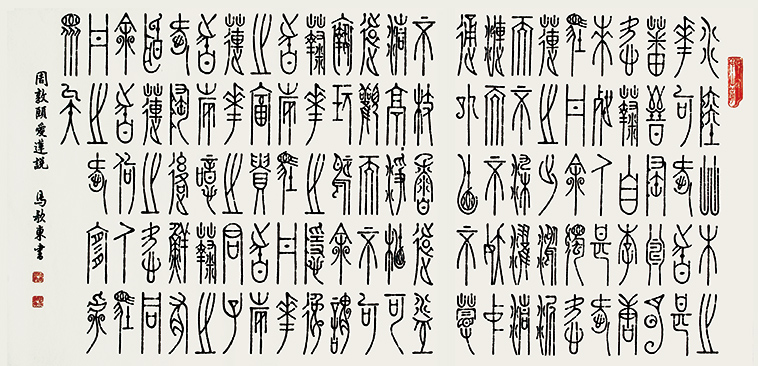 水陸艸木之
華可愛者甚
蕃晉陶淵明
愛菊自李唐
來世人甚愛
牡丹余獨愛
蓮之出淤泥
而不染濯清
漣而不妖中
通外直不蔓
不枝香遠益
清亭淨植可
遠觀而不可
褻玩焉余謂
菊華之隱逸
者也牡丹華
之富貴者也
蓮華之君子
者也噫菊之
愛陶後鮮有
聞蓮之愛同
余者何人牡
丹之愛宜乎
眾矣
周敦頤愛蓮説 馬敘東書